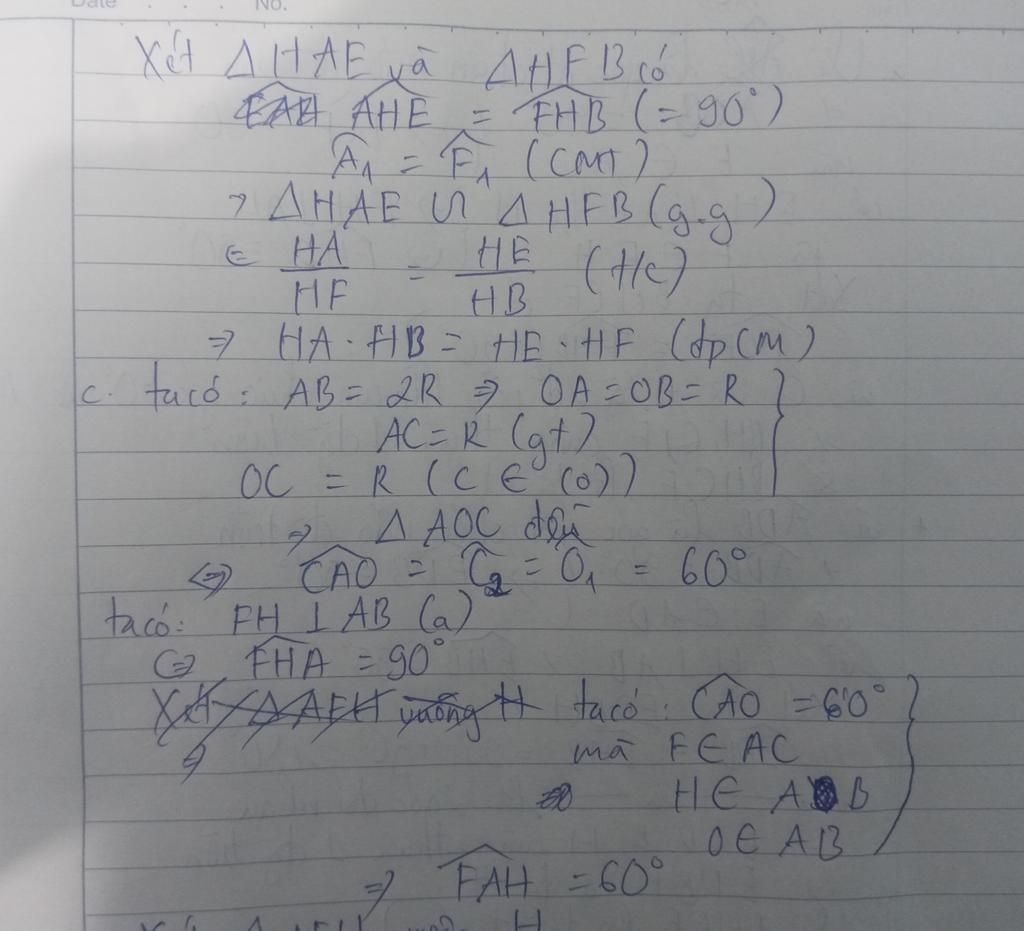 Date . . . No.
Xét ΔHAE và ΔHFB có
AHE = FHB (= 90°)
A₁ = F₁ (CMT)
⇒ ΔHAE ᔕ ΔHFB (g.g)
HA/HF = HE/HB (t/c)
⇒ HA · HB = HE · HF (đpCM)
c. ta có: AB = 2R ⇒ OA = OB = R
AC = R (gt)
OC = R (C ∈ (O))
⇒ ΔAOC đều
⇔ CAO = C₂ = O₁ = 60°
ta có: FH ⊥ AB (a)
⇔ FHA = 90°
Xét ΔAFH vuông H ta có: CAO = 60°
mà F ∈ AC
H ∈ AB
O ∈ AB
⇒ FAH = 60°